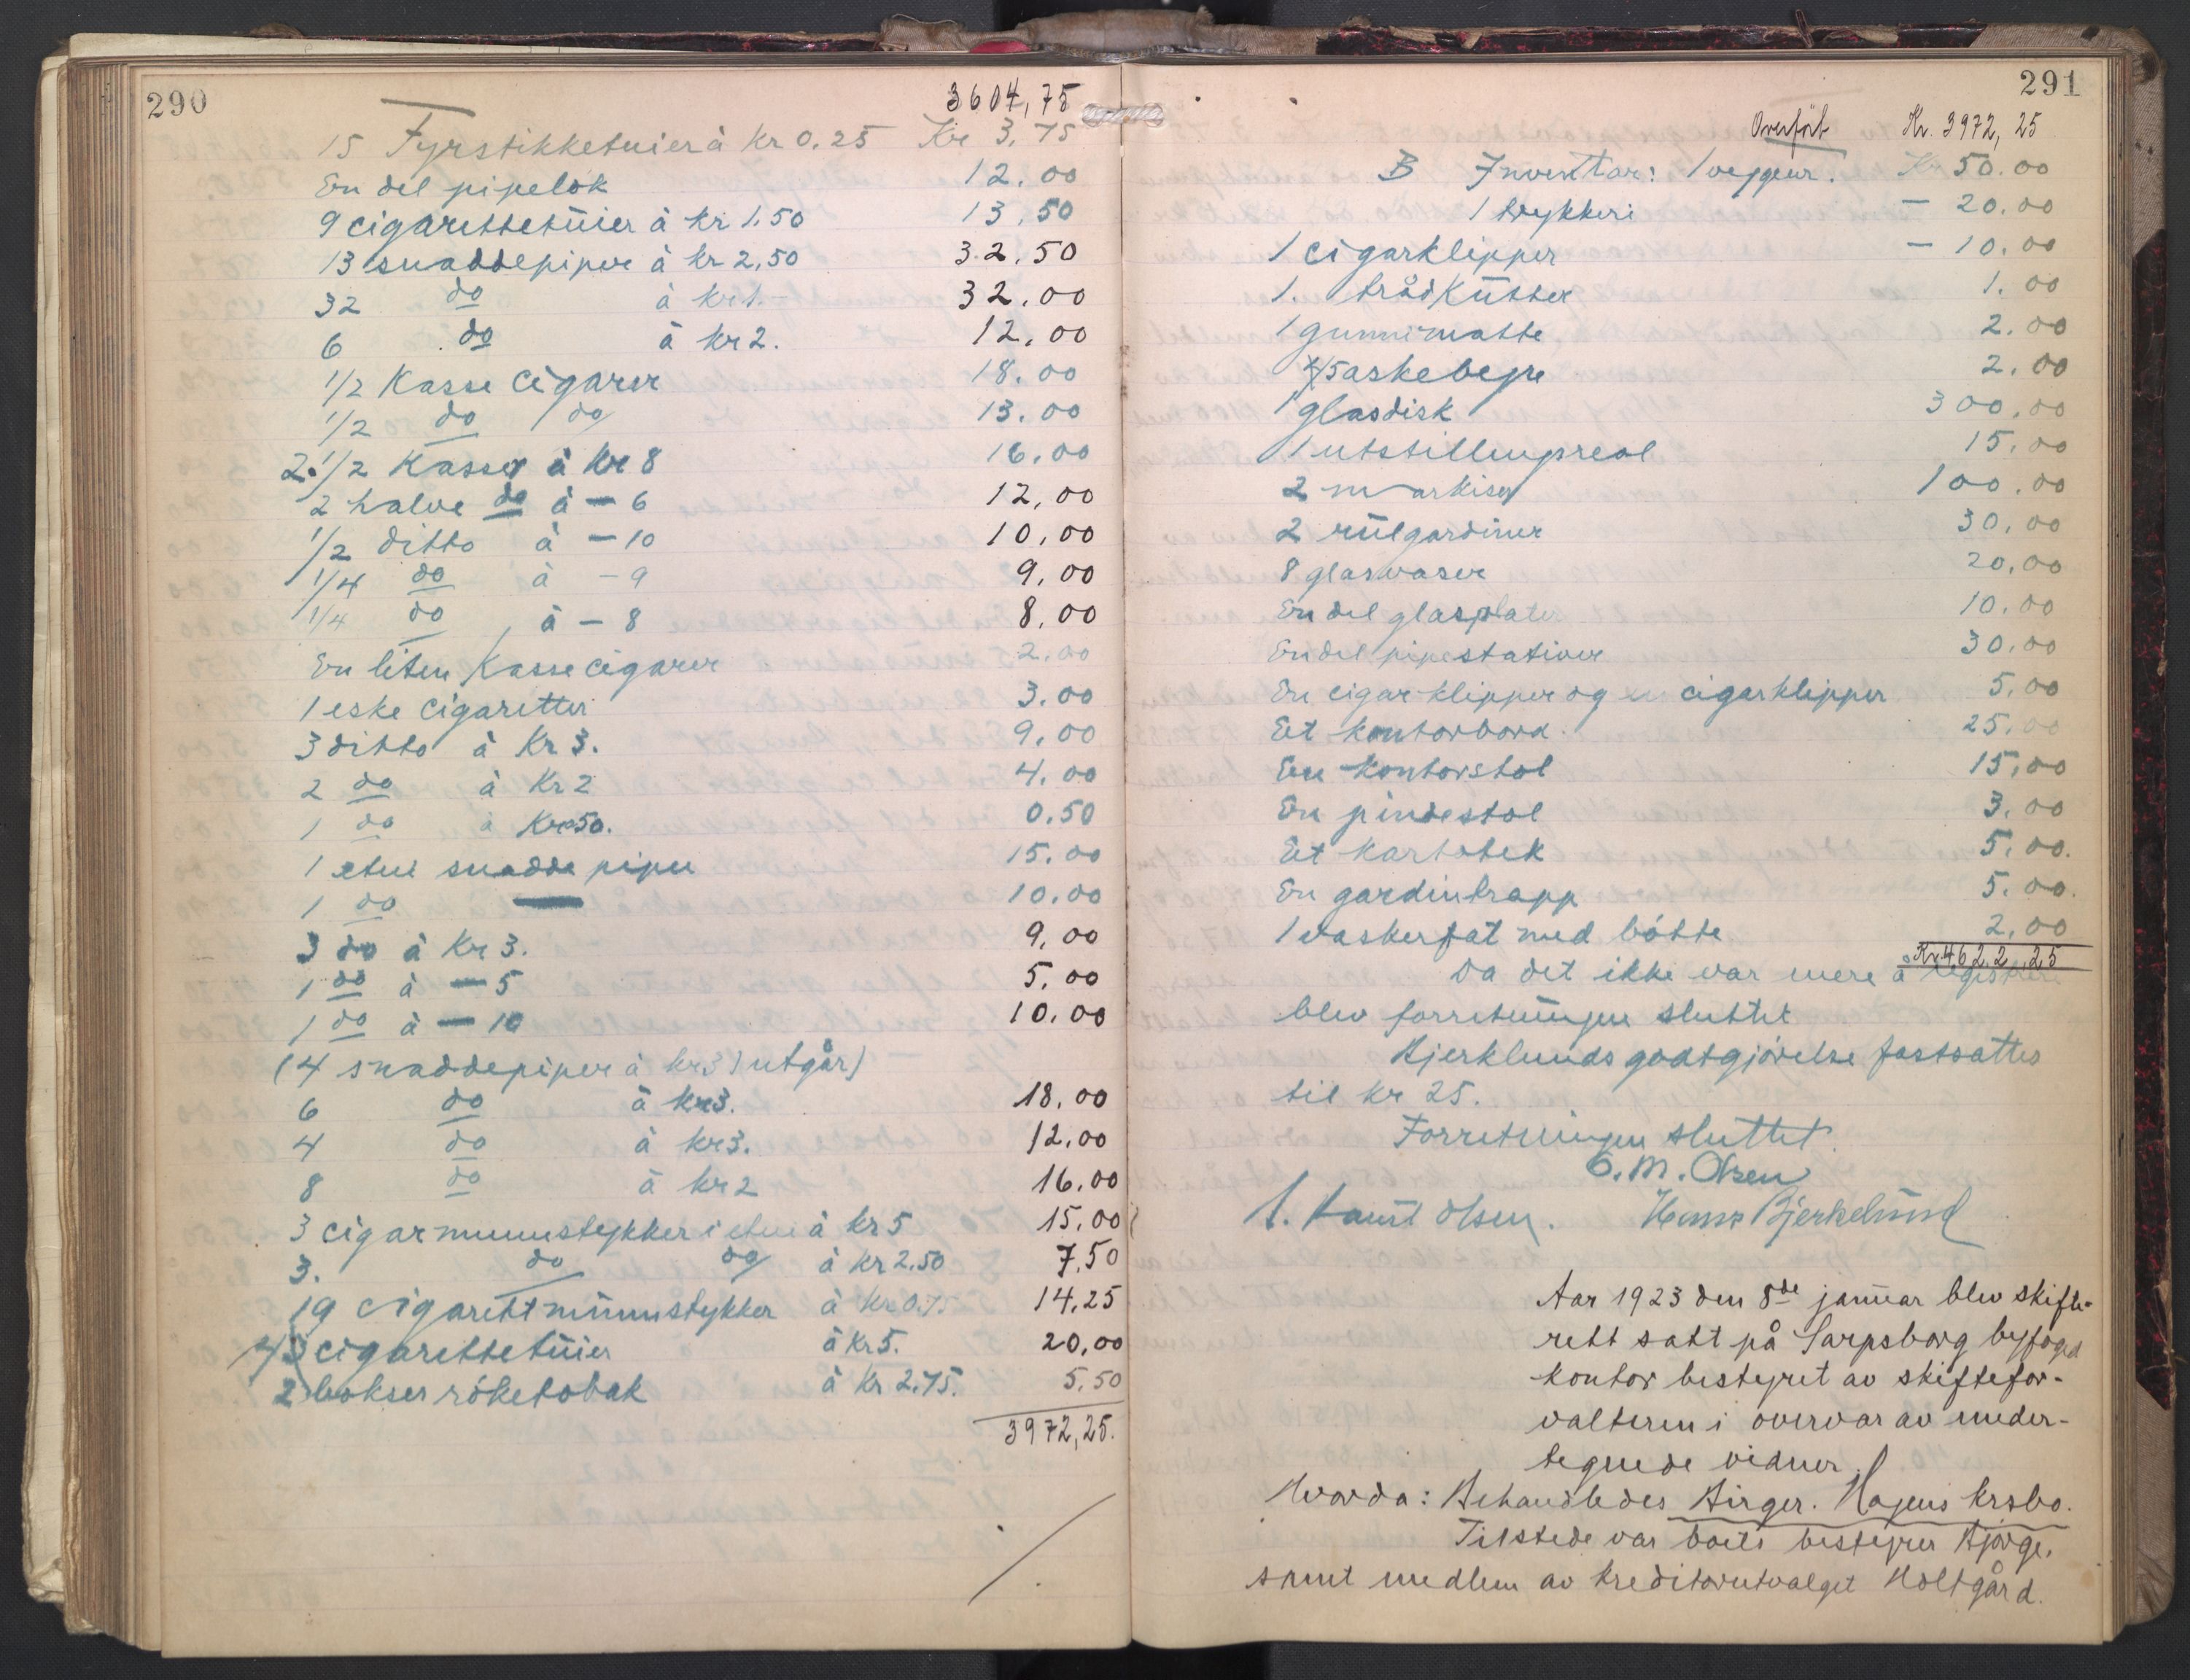 290
3604,75
15 Fyrstikketuier à kr 0.25 Kr 3,75
En del pipelok 12.00
9 cigarettetuier à kr 1.50 13,50
13 snaddepiper à kr 2,50 32,50
32 do à kr 1.- 32.00
6 do à kr 2. 12,00
1/2 Kasse cigarer 18.00
1/2 do do 13.00
2. 1/2 Kasser à kr 8 16.00
2 halve do à - 6 12,00
1/2 ditto à - 10 10,00
1/4 do à - 9 9,00
1/4 do à - 8 8,00
En liten Kasse cigarer 2.00
1 eske cigaretter 3.00
3 ditto à Kr 3. 9,00
2 do à Kr 2 4.00
1 do à Kr 050. 0.50
1 etui snadde piper 15.00
1 do — 10.00
3 do à Kr 3. 9,00
1 do à - 5 5,00
1 do à - 10 10.00
(4 snaddepiper à kr 3) utgår)
6 do à kr 3. 18,00
4 do à kr 3. 12.00
8 do à kr 2 16,00
3 cigarmunnstykker i etui à kr 5 15,00
3. do do à kr 2.50 7,50
19 cigarettmunnstykker à kr 0.75 14,25
4 cigarettetuier à kr 5. 20,00
2 bokser röketobak à kr 2.75. 5.50
3972,25.
291
Overført Kr. 3972,25
B Inventar: 1 veggeur. Kr 50.00
1 trykkeri - 20.00
1 cigarklipper - 10.00
1. trådkutter 1.00
1 gummimatte 2.00
5 askebegre 2.00
1 glasdisk 300.00
1 utstillingsreol 15.00
2 markiser 100.00
2 rullgardiner 30.00
8 glasvaser 20.00
En del glasplater 10.00
En del pipestativer 30.00
En cigarklipper og en cigarklipper 5.00
Et kontorbord. 25.00
En kontorstol 15,00
En pindestol 3.00
Et kartotek 5.00.
En gardintrapp 5.00.
1 vaskerfat med bötte 2,00
Kr. 4622,25
Da det ikke var mere å registrere
blev forretningen sluttet
Bjerklunds godtgjörelse fastsattes
til kr 25.
Forretningen sluttet.
O. M. Olsen
Olsen. Hans Bjerkelund
Aar 1923 den 8de januar blev skifte-
rett satt på Sarpsborg byfoged
kontor bestyret av skiftefor-
valteren i overvær av under-
tegnede vidner.
Hvorda: Behandledes Birger. Hagens krsbo.
Tilstede var boets bestyrer Bjørge,
samt medlem av kreditorutvalget Holtgård.